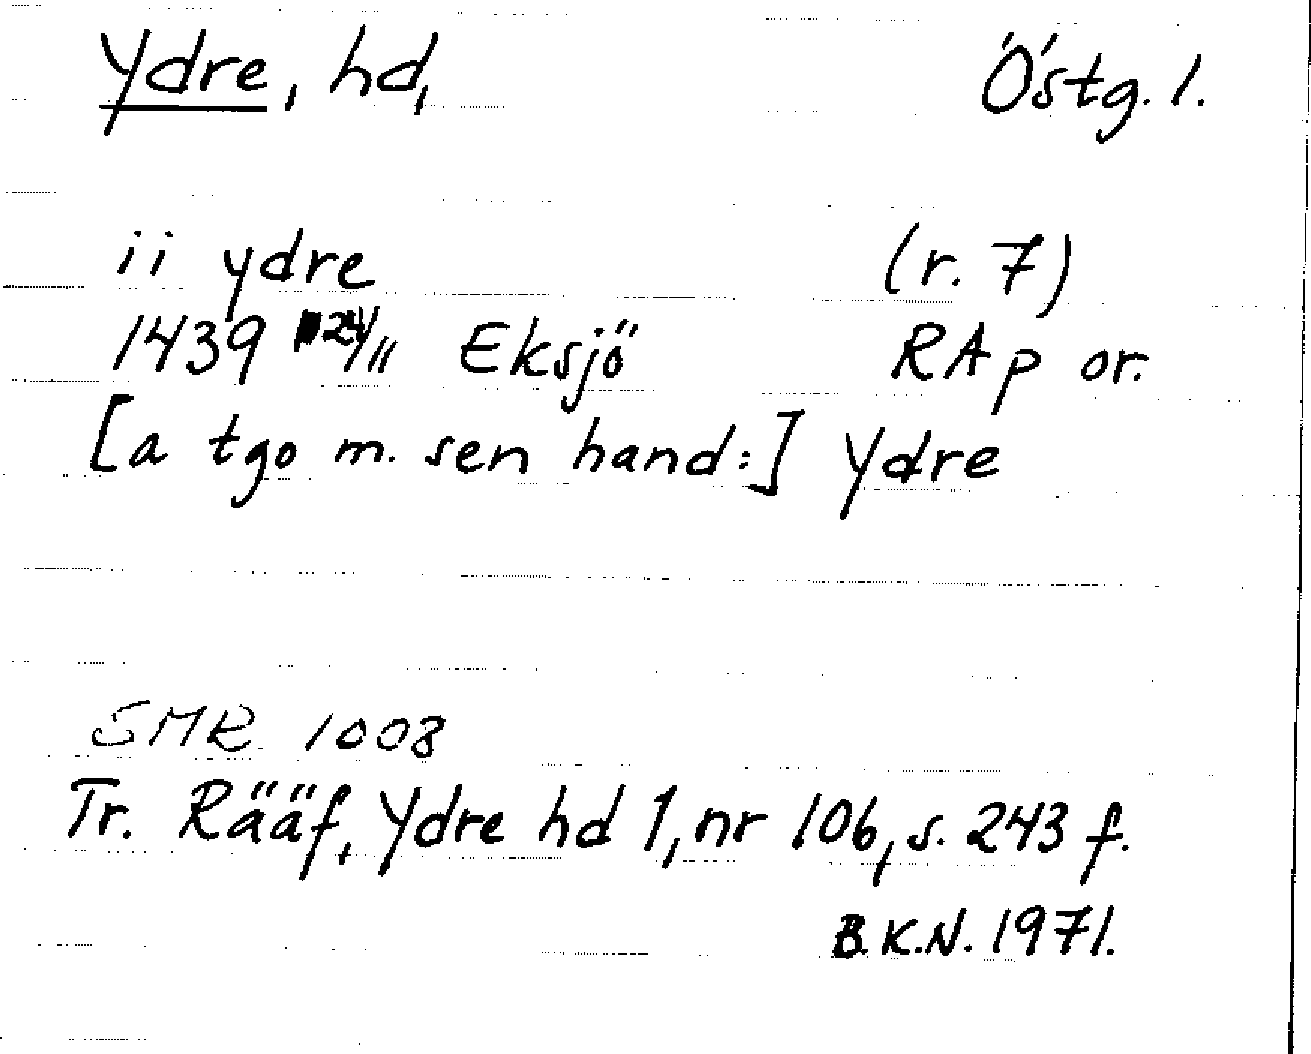 Ydre, hd, Östg. l.
ii ydre (r. 7)
1439 24/11 Eksjö RAp or.
[a tgo m. sen hand:] Ydre
SMR 1008
Tr. Rääf, Ydre hd 1, nr 106, s. 243 f.
B.K.N. 1971.